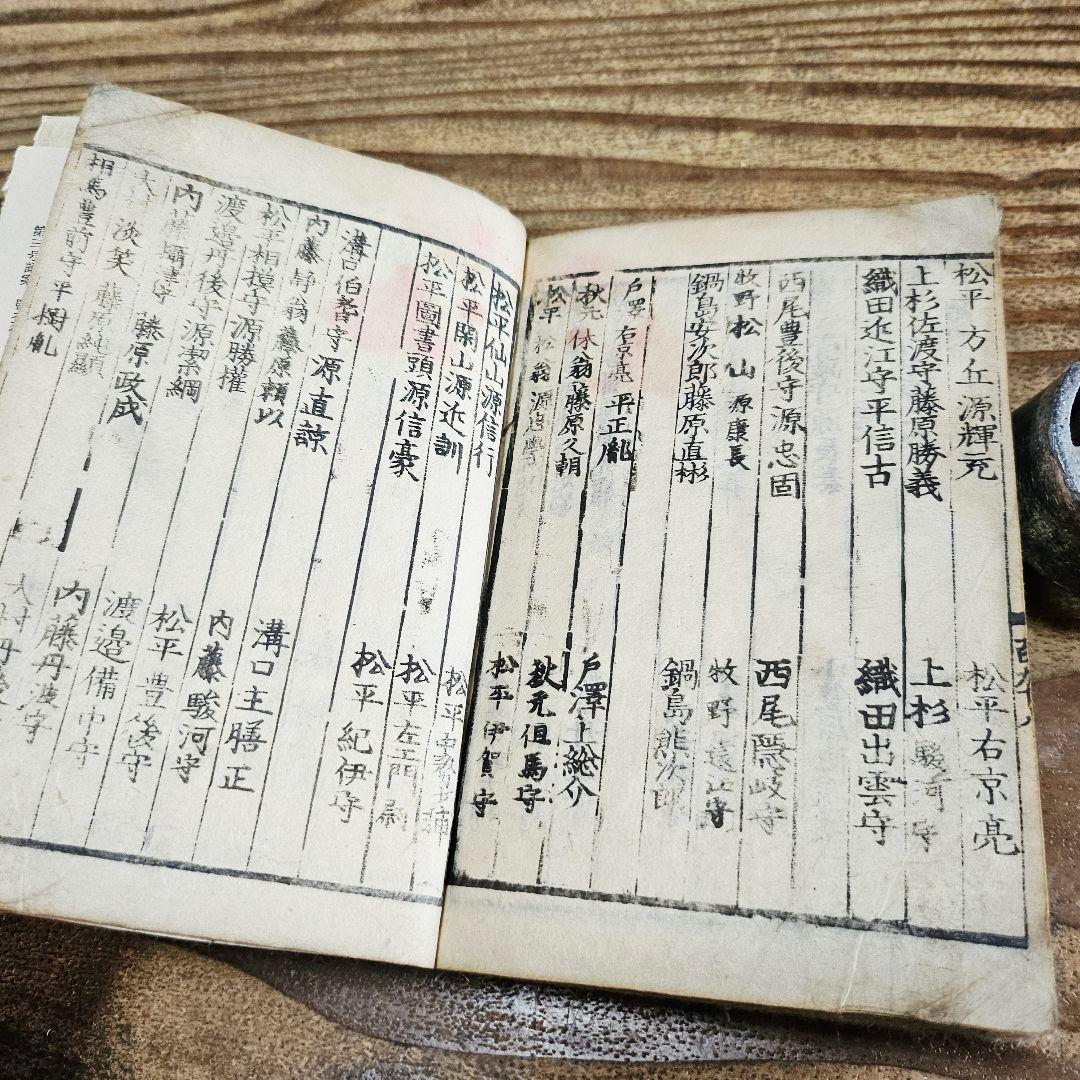 松平 方丘 源輝充 松平右京亮
上杉佐渡守藤原勝義 上杉駿河守
織田近江守平信古 織田出雲守
西尾豊後守源忠固 西尾隠岐守
牧野松山源康長 牧野遠江守
鍋島安次郎藤原直彬 鍋島熊次郎
戸澤右京亮平正胤 戸澤上総介
秋元休翁藤原久朝 秋元但馬守
松平松翁源 松平伊賀守
松平仙山源信行 松平
松平閑山源近訓 松平左衛門尉
松平圖書頭源信豪 松平紀伊守
溝口伯耆守源直諒 溝口主膳正
内藤静翁藤原頼以 内藤駿河守
松平相摸守源勝権 松平豊後守
渡邉丹後守源潔綱 渡邉備中守
内藤攝津守藤原政成 内藤丹波守
淡笑藤原純顕 大村丹後
相馬豊前守平樹胤